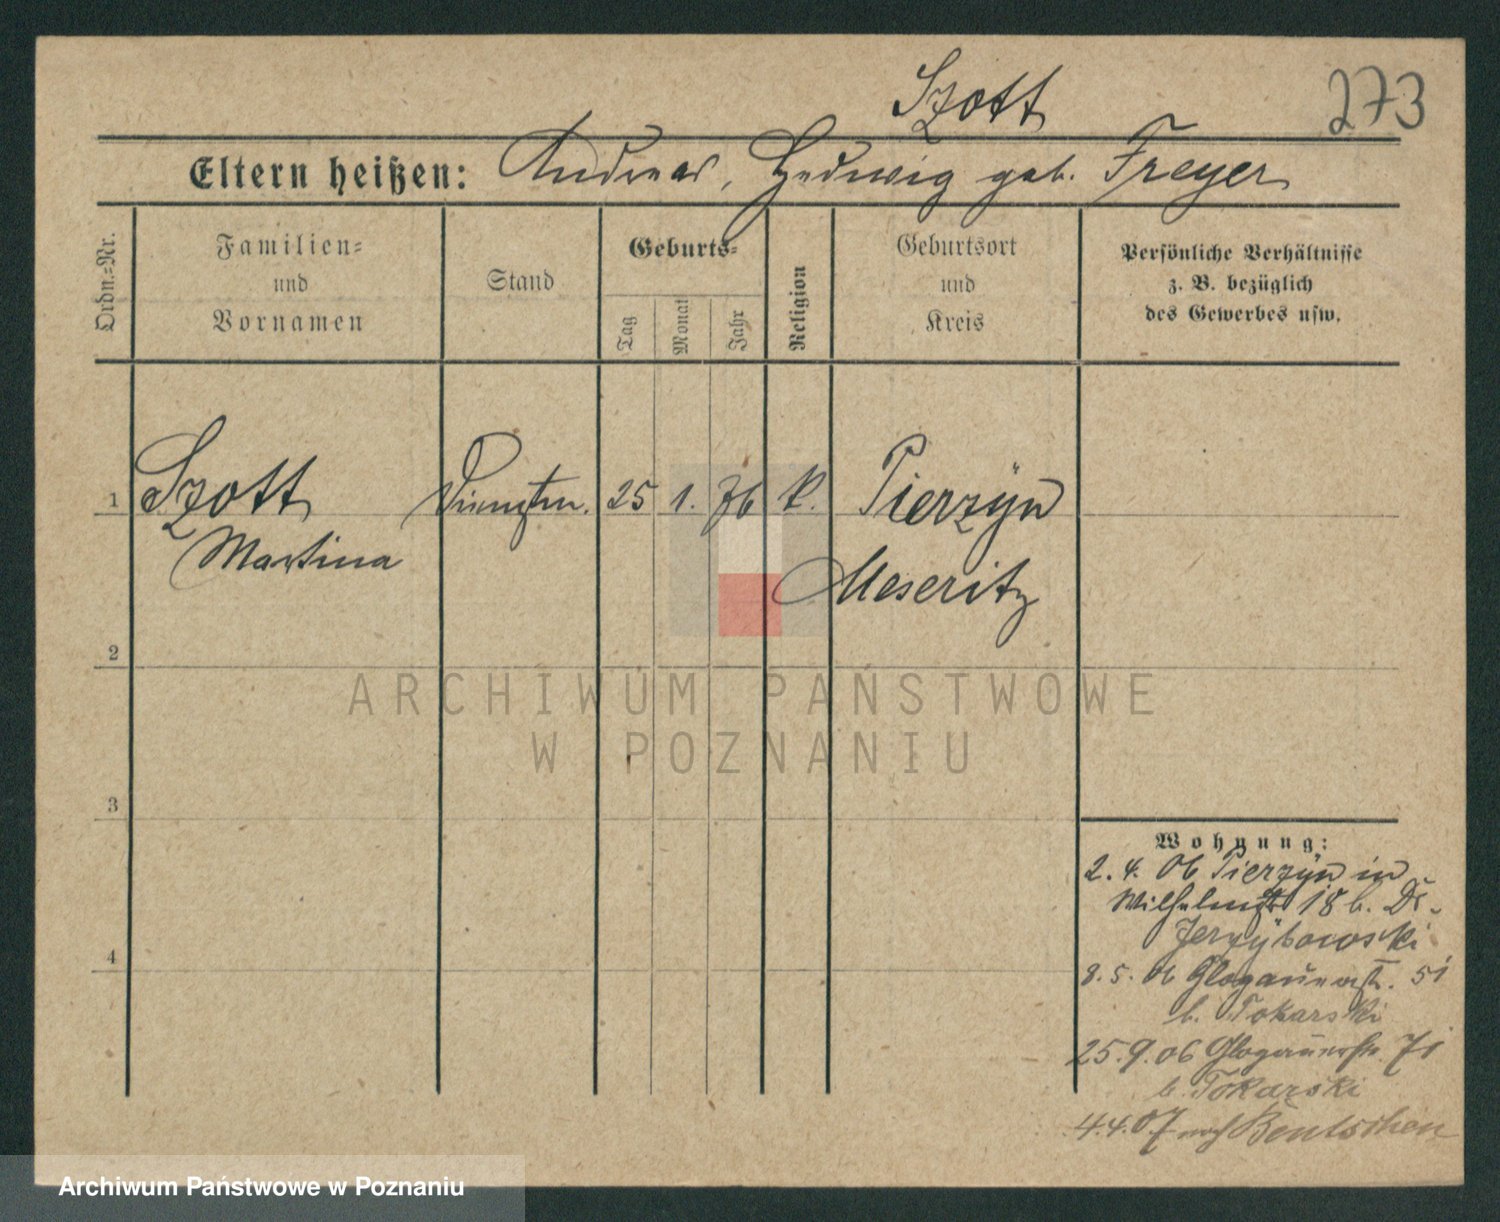 Szott
273
Eltern heißen: Andreas, Hedwig geb. Freyer
Ordn.=Nr.
Familien=
und
Vornamen
Stand
Geburts=
Tag
Monat
Jahr
Religion
Geburtsort
und
Kreis
Persönliche Verhältnisse
z. B. bezüglich
des Gewerbes usw.
1 Szott Dienstm. 25 1. 76 k. Pierzyn
Martina
Meseritz
2
ARCHIWUM PAŃSTWOWE
W POZNANIU
3
Wohnung:
2. 4. 06 Pierzyn in
Wilhelmstr 18 b. Dr.
Jerzykowski
4
8. 5. 06 Glogauerstr. 51
b. Tokarski
25. 9. 06 Glogauerstr. 71
b. Tokarski
4.4.07 nach Bentschen
Archiwum Państwowe w Poznaniu